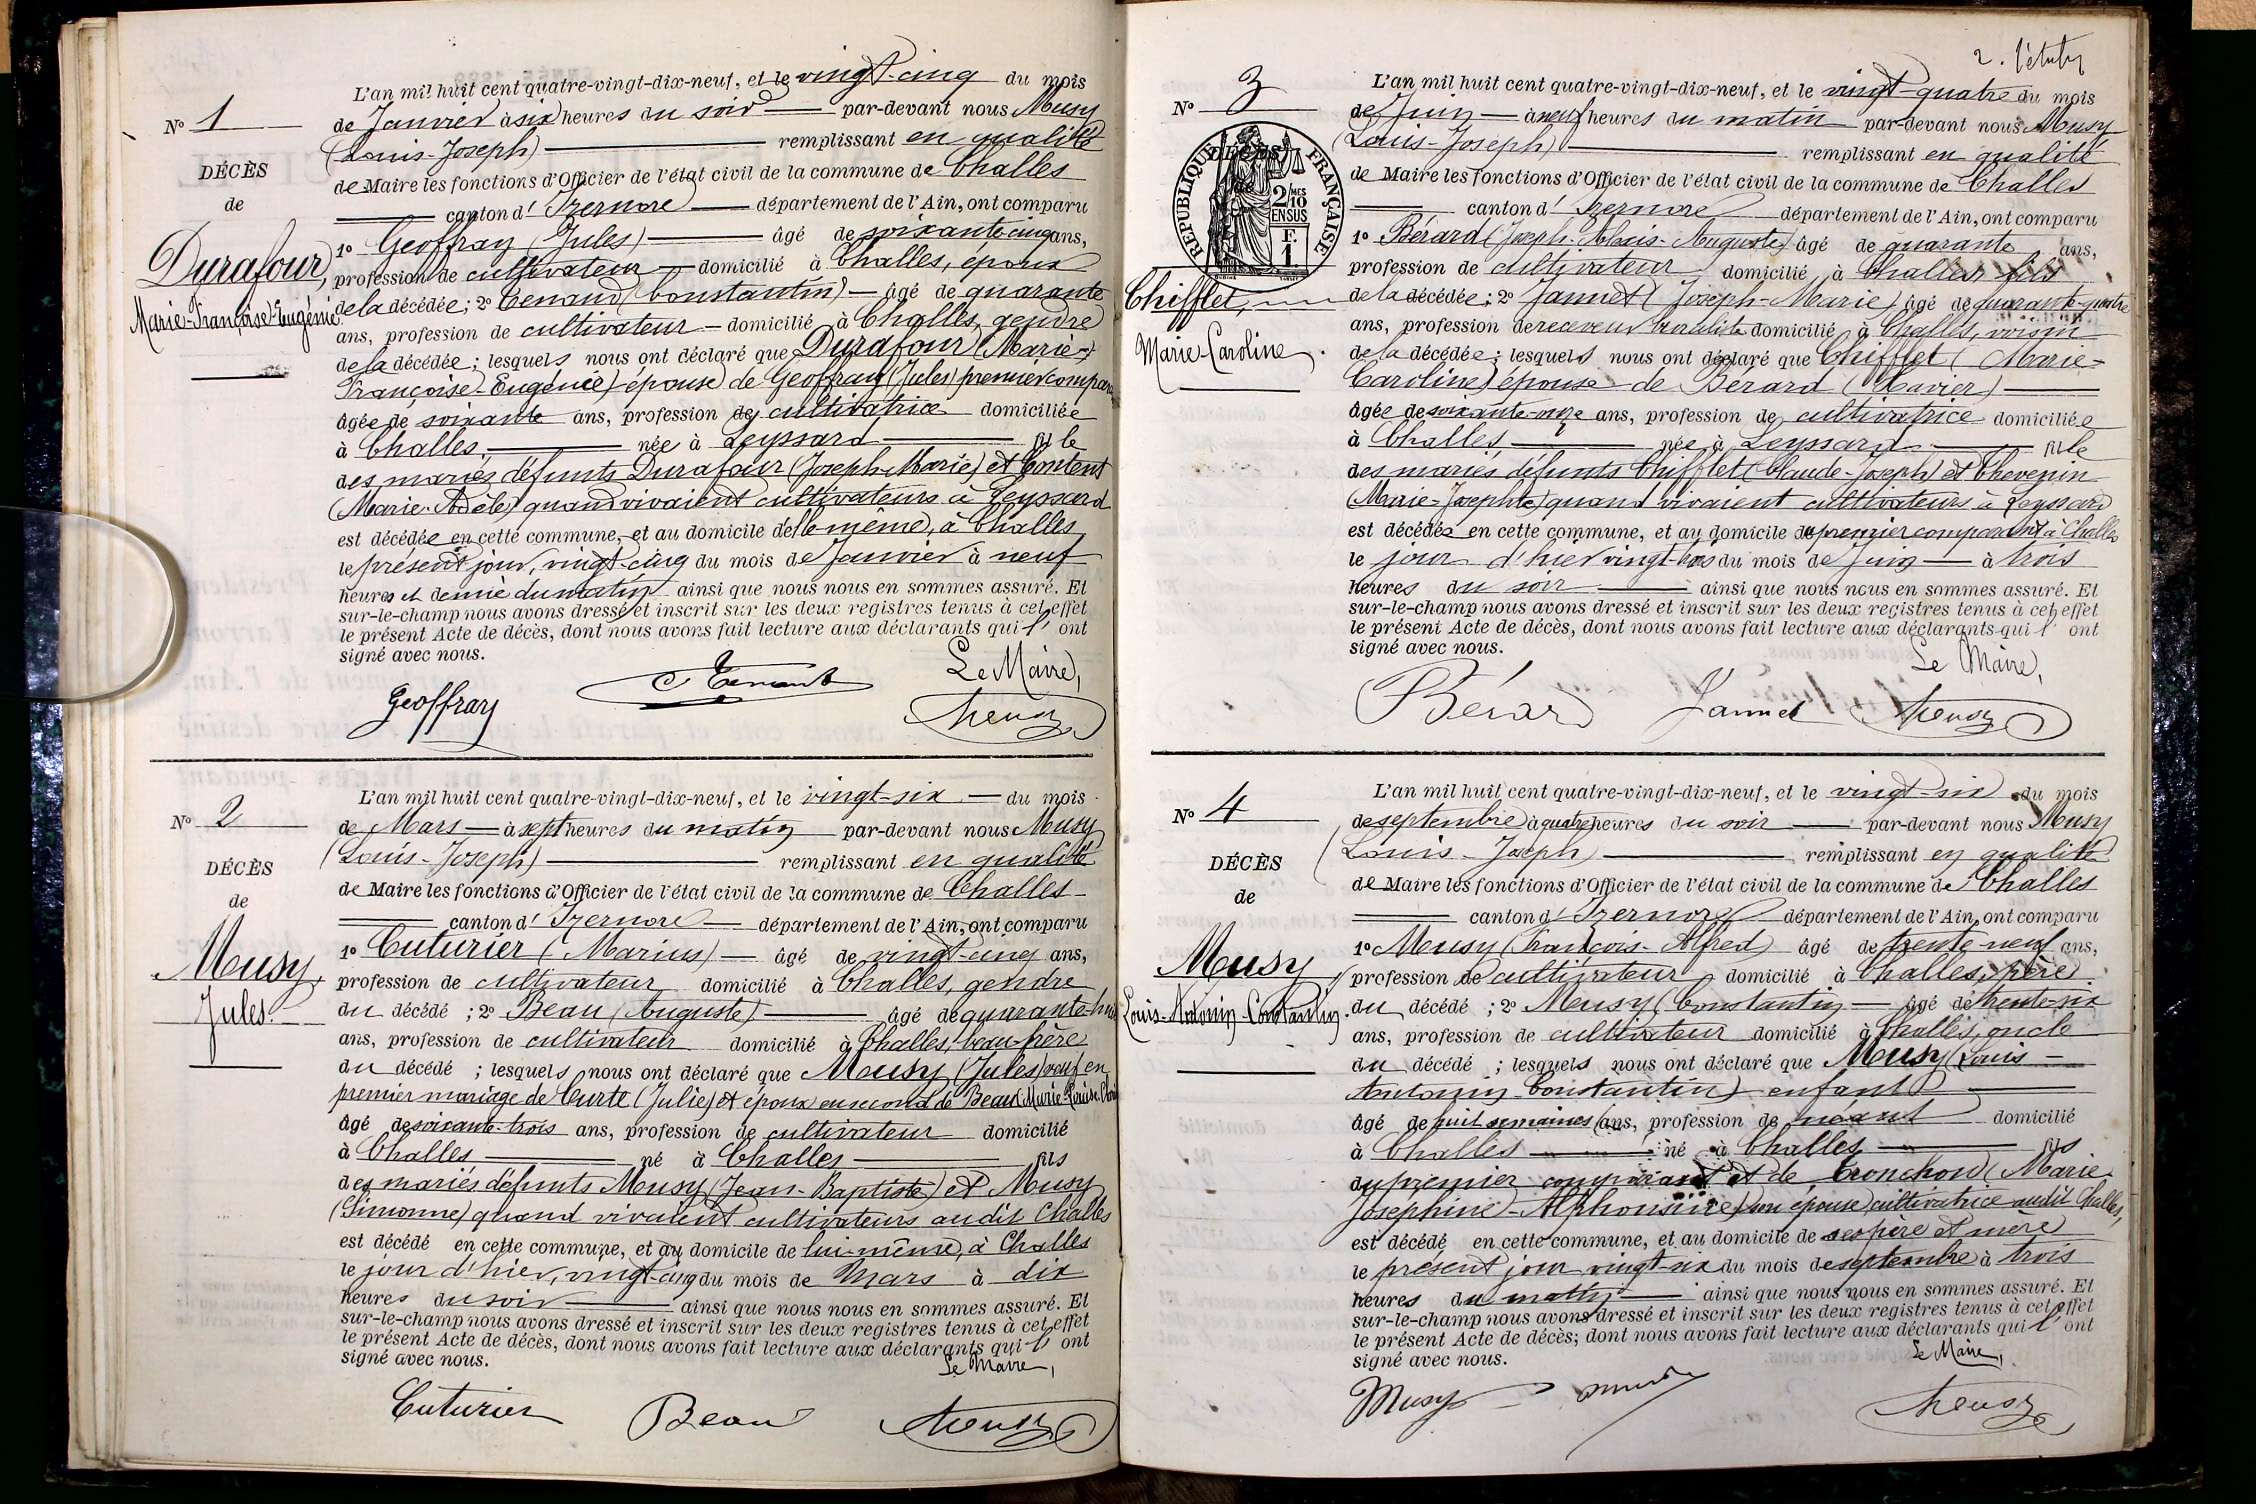 N° 1
DÉCÈS
de
Durafour,
Marie-Françoise-Eugénie
L'an mil huit cent quatre-vingt-dix-neuf, et le vingt-cinq du mois
de Janvier à six heures du soir par-devant nous Musy
(Louis-Joseph) remplissant en qualité
de Maire les fonctions d'Officier de l'état civil de la commune de Challes
canton d' Izernore département de l'Ain, ont comparu
1° Geoffray (Jules) âgé de soixante-cinq ans,
profession de cultivateur domicilié à Challes, époux
de la décédée; 2° Tenand (Constantin) âgé de quarante
ans, profession de cultivateur domicilié à Challes, gendre
de la décédée; lesquels nous ont déclaré que Durafour (Marie-
Françoise-Eugénie) épouse de Geoffray (Jules) premier comparant
âgée de soixante ans, profession de cultivatrice domiciliée
à Challes, née à Leyssard fille
des mariés défunts Durafour (Joseph-Marie) et Content
(Marie-Adèle) quand vivaient cultivateurs à Leyssard
est décédée en cette commune, et au domicile de le même, à Challes
le présent jour, vingt-cinq du mois de Janvier à neuf
heures et demie du matin ainsi que nous nous en sommes assuré. Et
sur-le-champ nous avons dressé et inscrit sur les deux registres tenus à cet effet
le présent Acte de décès, dont nous avons fait lecture aux déclarants qui l'ont
signé avec nous.
Le Maire,
Geoffray C Tenand Musy
N° 2
DÉCÈS
de
Musy,
Jules.
L'an mil huit cent quatre-vingt-dix-neuf, et le vingt-six du mois
de Mars à sept heures du matin par-devant nous Musy
(Louis-Joseph) remplissant en qualité
de Maire les fonctions d'Officier de l'état civil de la commune de Challes
canton d' Izernore département de l'Ain, ont comparu
1° Cuturier (Marius) âgé de vingt-cinq ans,
profession de cultivateur domicilié à Challes, gendre
du décédé; 2° Beau (Auguste) âgé de quarante-huit
ans, profession de cultivateur domicilié à Challes, beau-frère
du décédé; lesquels nous ont déclaré que Musy (Jules) veuf en
premier mariage de Curte (Julie) et époux en second de Beau (Marie-Louise
âgé de soixante-trois ans, profession de cultivateur domicilié
à Challes né à Challes fils
des mariés défunts Musy (Jean-Baptiste) et Musy
(Simonne) quand vivaient cultivateurs audit Challes
est décédé en cette commune, et au domicile de lui-même, à Challes
le jour d'hier, vingt-cinq du mois de Mars à dix
heures du soir ainsi que nous nous en sommes assuré. Et
sur-le-champ nous avons dressé et inscrit sur les deux registres tenus à cet effet
le présent Acte de décès, dont nous avons fait lecture aux déclarants qui l'ont
signé avec nous.
Le Maire,
Cuturier Beau Musy
2.
N° 3
DÉCÈS
de
RÉPUBLIQUE FRANÇAISE
2/10 MES
EN SUS
F.
1
Chifflet,
Marie-Caroline
L'an mil huit cent quatre-vingt-dix-neuf, et le vingt-quatre du mois
de Juin à neuf heures du matin par-devant nous Musy
(Louis-Joseph) remplissant en qualité
de Maire les fonctions d'Officier de l'état civil de la commune de Challes
canton d' Izernore département de l'Ain, ont comparu
1° Bérard (Joseph-Alexis-Auguste) âgé de quarante ans,
profession de cultivateur domicilié à Challes fils
de la décédée; 2° Jannet (Joseph-Marie) âgé de quarante-quatre
ans, profession de receveur buraliste domicilié à Challes, voisin
de la décédée; lesquels nous ont déclaré que Chifflet (Marie-
Caroline) épouse de Bérard (Xavier)
âgée de soixante-onze ans, profession de cultivatrice domiciliée
à Challes, née à Leyssard fille
des mariés défunts Chifflet (Claude-Joseph) et Thevenin
(Marie-Josephte) quand vivaient cultivateurs à Leyssard
est décédée en cette commune, et au domicile du premier comparant à Challes
le jour d'hier vingt-trois du mois de Juin à trois
heures du soir ainsi que nous nous en sommes assuré. Et
sur-le-champ nous avons dressé et inscrit sur les deux registres tenus à cet effet
le présent Acte de décès, dont nous avons fait lecture aux déclarants qui l'ont
signé avec nous.
Le Maire,
Bérard Jannet Musy
N° 4
DÉCÈS
de
Musy
Louis-Antonin-Constantin.
L'an mil huit cent quatre-vingt-dix-neuf, et le vingt-six du mois
de septembre à quatre heures du soir par-devant nous Musy
(Louis-Joseph) remplissant en qualité
de Maire les fonctions d'Officier de l'état civil de la commune de Challes
canton d' Izernore département de l'Ain, ont comparu
1° Musy (François-Alfred) âgé de trente-neuf ans,
profession de cultivateur domicilié à Challes, père
du décédé; 2° Musy (Constantin âgé de trente-six
ans, profession de cultivateur domicilié à Challes, oncle
du décédé; lesquels nous ont déclaré que Musy (Louis-
Antonin-Constantin) enfant
âgé de huit semaines ans, profession de néant domicilié
à Challes né à Challes fils
du premier comparant et de Tronchon (Marie
Joséphine-Alphonsine) son épouse cultivatrice audit Challes,
est décédé en cette commune, et au domicile de ses père et mère
le présent jour vingt-six du mois de septembre à trois
heures du matin ainsi que nous nous en sommes assuré. Et
sur-le-champ nous avons dressé et inscrit sur les deux registres tenus à cet effet
le présent Acte de décès; dont nous avons fait lecture aux déclarants qui l'ont
signé avec nous.
Le Maire,
Musy Musy